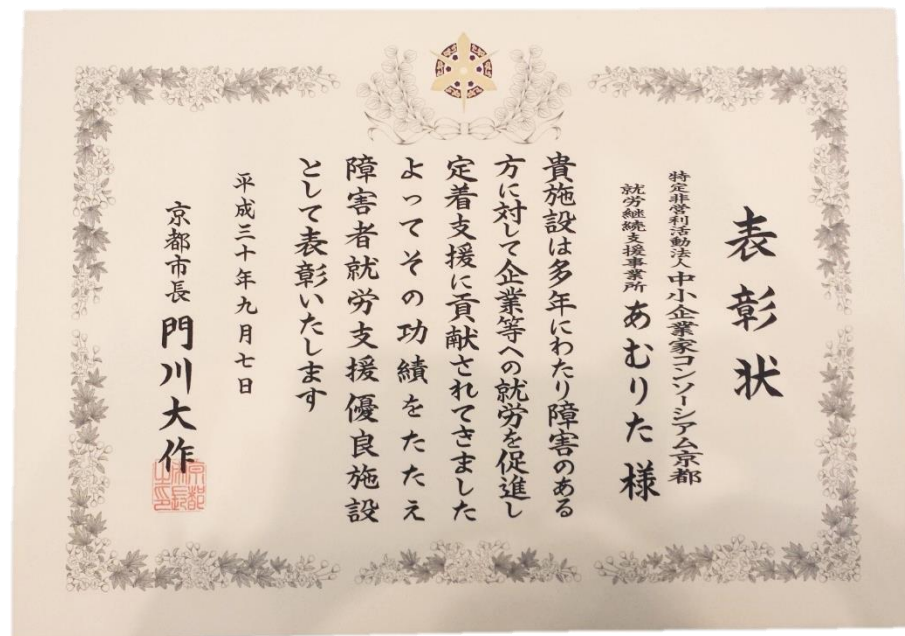 表彰状
特定非営利活動法人 中小企業家コンソーシアム京都
就労継続支援事業所 あむりた 様
貴施設は多年にわたり障害のある
方に対して企業等への就労を促進し
定着支援に貢献されてきました
よってその功績をたたえ
障害者就労支援優良施設
として表彰いたします
平成三十年九月七日
京都市長 門川大作
京都市長之印